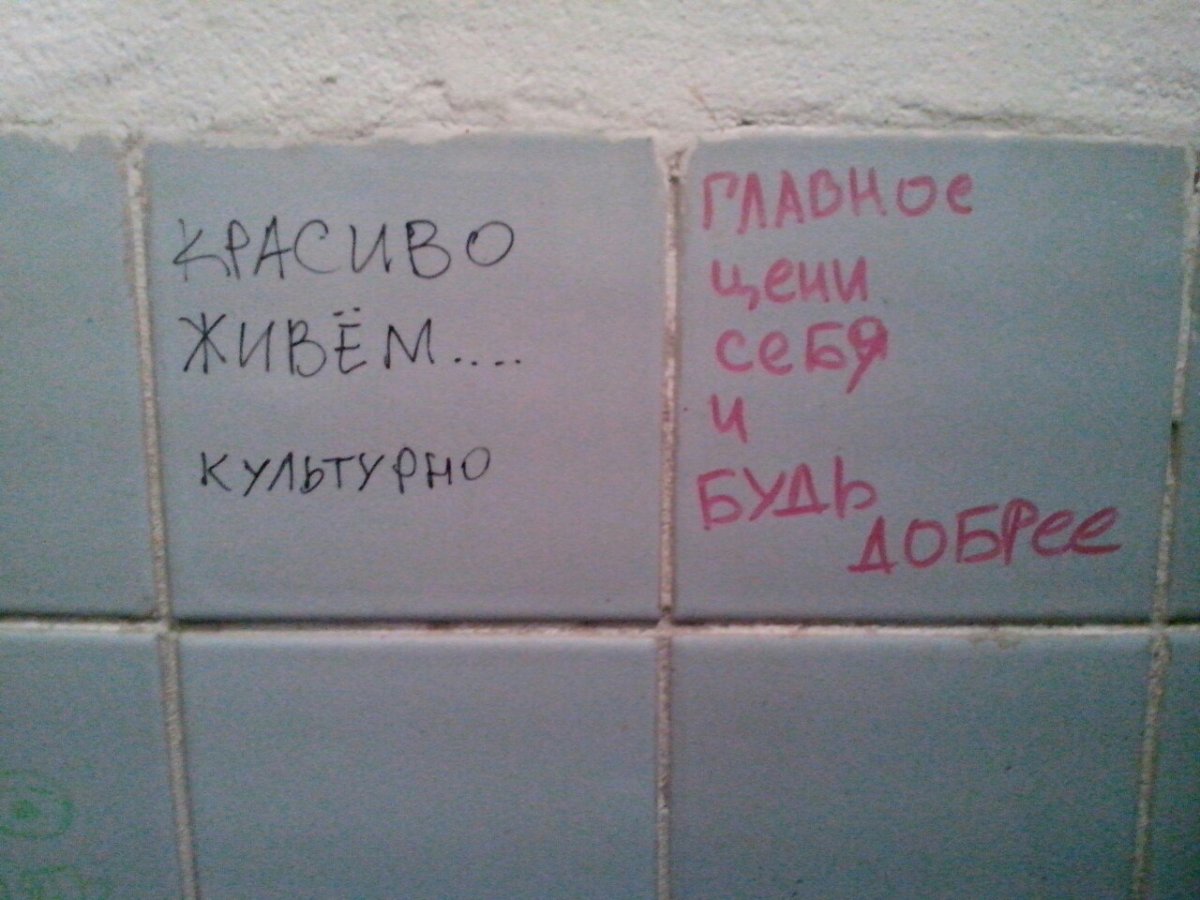 КРАСИВО
ЖИВЁМ....
КУЛЬТУРНО
ГЛАВНОЕ
ЦЕНИ
СЕБЯ
И
БУДЬ
ДОБРЕЕ